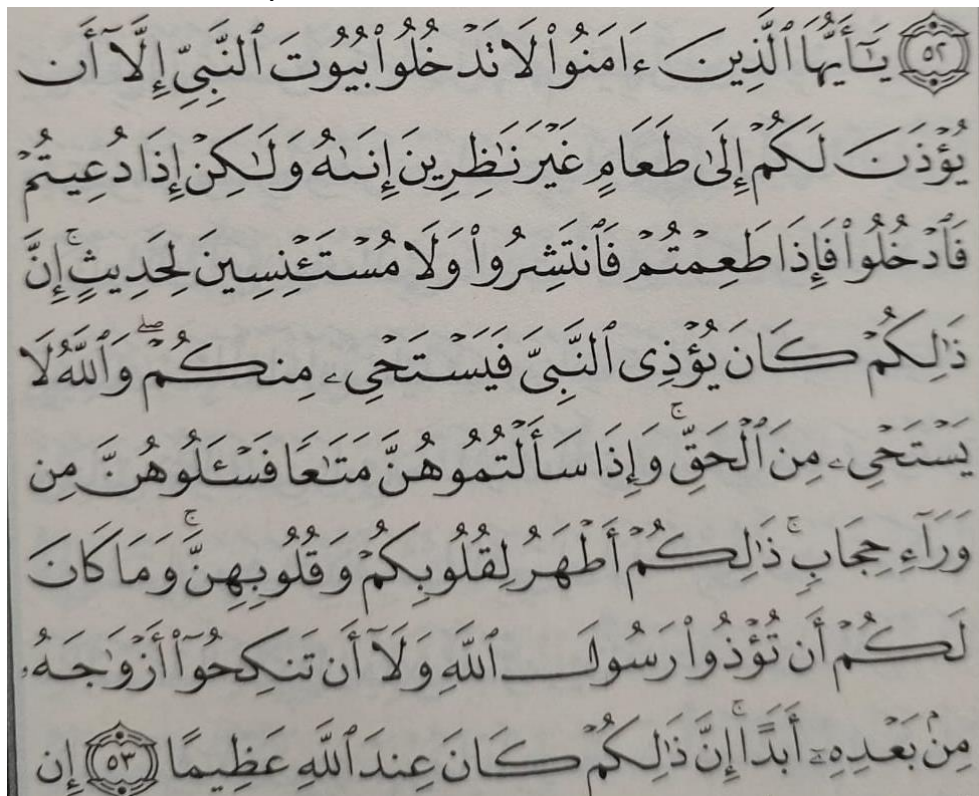 ۝٥٢ يَـٰٓأَيُّهَا ٱلَّذِينَ ءَامَنُوا۟ لَا تَدْخُلُوا۟ بُيُوتَ ٱلنَّبِىِّ إِلَّآ أَن
يُؤْذَنَ لَكُمْ إِلَىٰ طَعَامٍ غَيْرَ نَـٰظِرِينَ إِنَىٰهُ وَلَـٰكِنْ إِذَا دُعِيتُمْ
فَٱدْخُلُوا۟ فَإِذَا طَعِمْتُمْ فَٱنتَشِرُوا۟ وَلَا مُسْتَـْٔنِسِينَ لِحَدِيثٍ ۚ إِنَّ
ذَٰلِكُمْ كَانَ يُؤْذِى ٱلنَّبِىَّ فَيَسْتَحْىِۦ مِنكُمْ ۖ وَٱللَّهُ لَا
يَسْتَحْىِۦ مِنَ ٱلْحَقِّ ۚ وَإِذَا سَأَلْتُمُوهُنَّ مَتَـٰعًا فَسْـَٔلُوهُنَّ مِن
وَرَآءِ حِجَابٍ ۚ ذَٰلِكُمْ أَطْهَرُ لِقُلُوبِكُمْ وَقُلُوبِهِنَّ ۚ وَمَا كَانَ
لَكُمْ أَن تُؤْذُوا۟ رَسُولَ ٱللَّهِ وَلَآ أَن تَنكِحُوٓا۟ أَزْوَٰجَهُۥ
مِنۢ بَعْدِهِۦٓ أَبَدًا ۚ إِنَّ ذَٰلِكُمْ كَانَ عِندَ ٱللَّهِ عَظِيمًا ۝٥٣ إِن